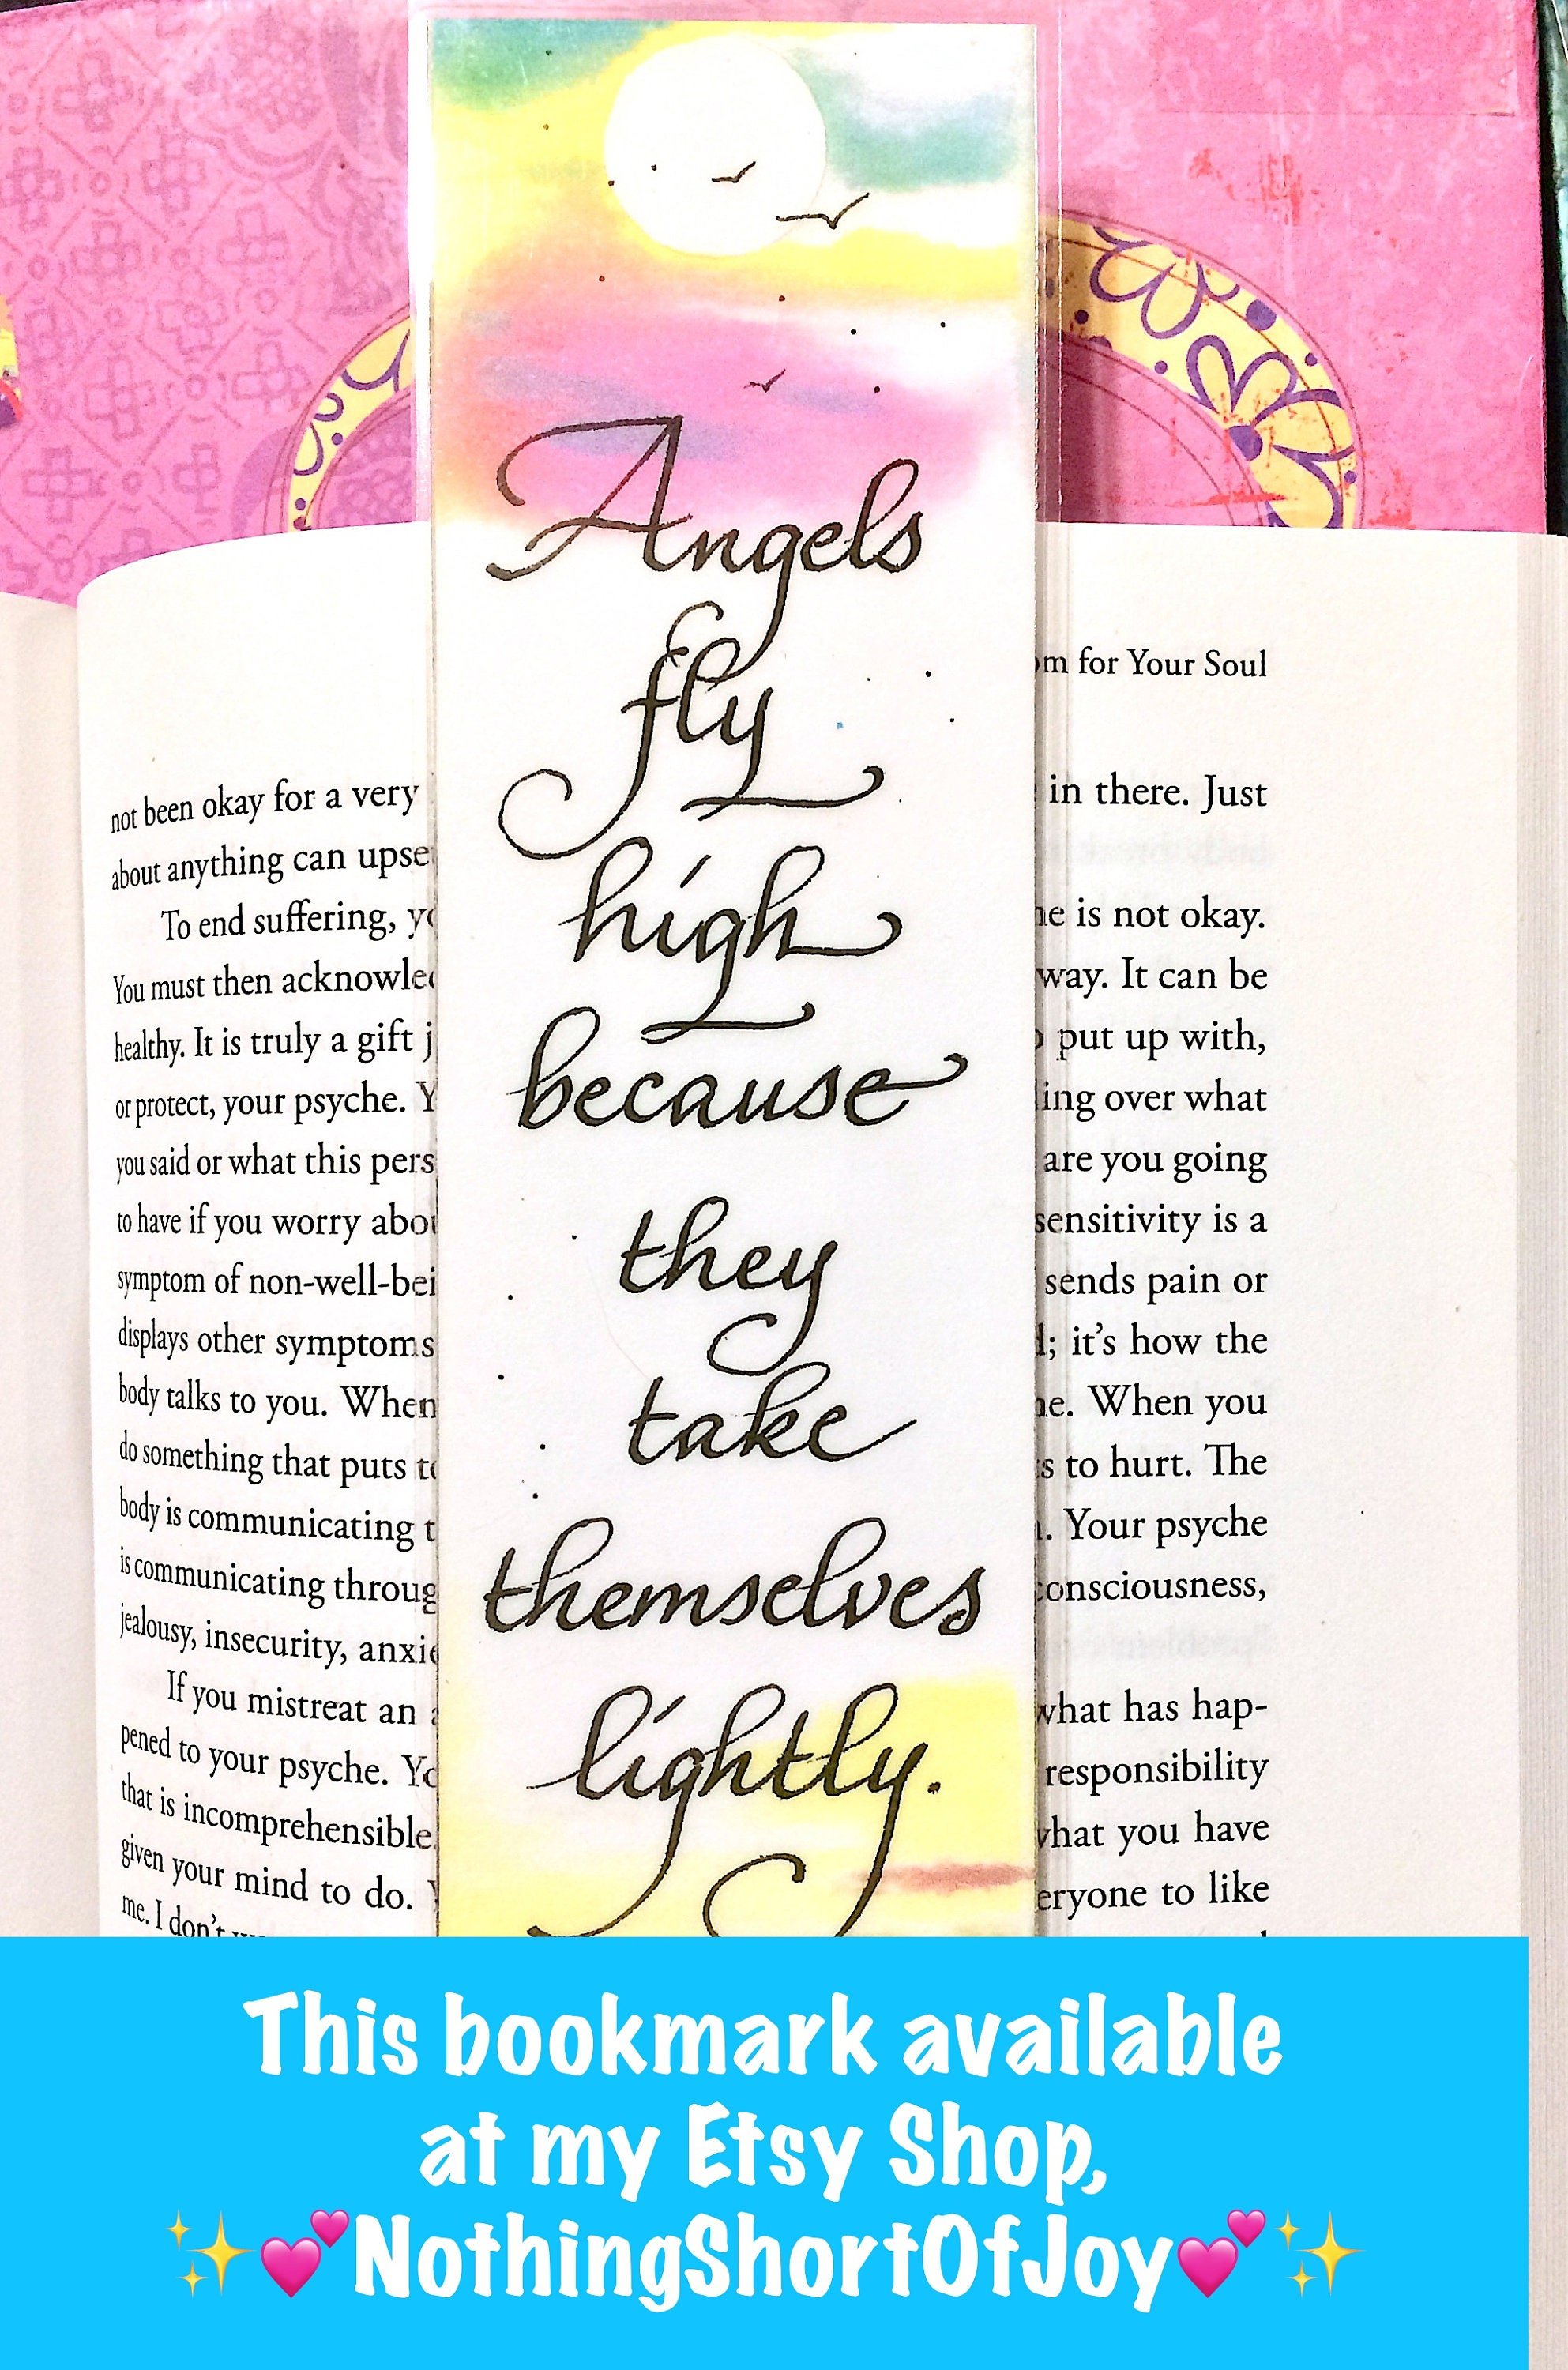 Angels
fly
high
because
they
take
themselves
lightly.
for Your Soul
not been okay for a very
about anything can
To end suffering,
You must then
healthy. It is truly a gift
or protect, your psyche.
you said or what this
to have if you worry
symptom of
displays other symptoms
body talks to you. When
do something that puts
body is communicating
is communicating
jealousy, insecurity,
If you mistreat an
pened to your psyche.
that is incomprehensible.
given your mind to do.
me. I don't
in there. Just
is not okay.
way. It can be
put up with,
over what
are you going
sensitivity is a
sends pain or
it's how the
When you
to hurt. The
Your psyche
consciousness,
what has hap-
responsibility
what you have
to like
This bookmark available
at my Etsy Shop,
✨💕NothingShortOfJoy💕✨